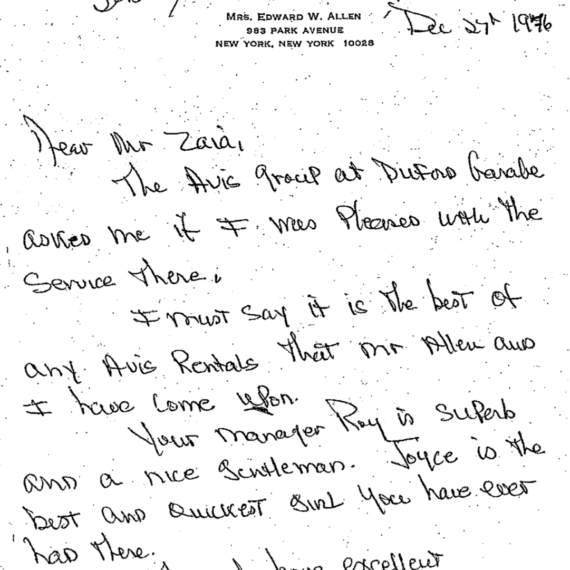 MRS. EDWARD W. ALLEN
983 PARK AVENUE
NEW YORK, NEW YORK 10028
Dec 27th 1976
Dear Mr Zaia,
The Avis group at Duford Garabe
asked me if I was Pleased with the
Service there.
I must say it is the best of
any Avis Rentals that Mr Allen and
I have come upon.
Your manager Ray is superb
and a nice gentleman. Joyce is the
best and quickest girl you have ever
had there.
have excellent